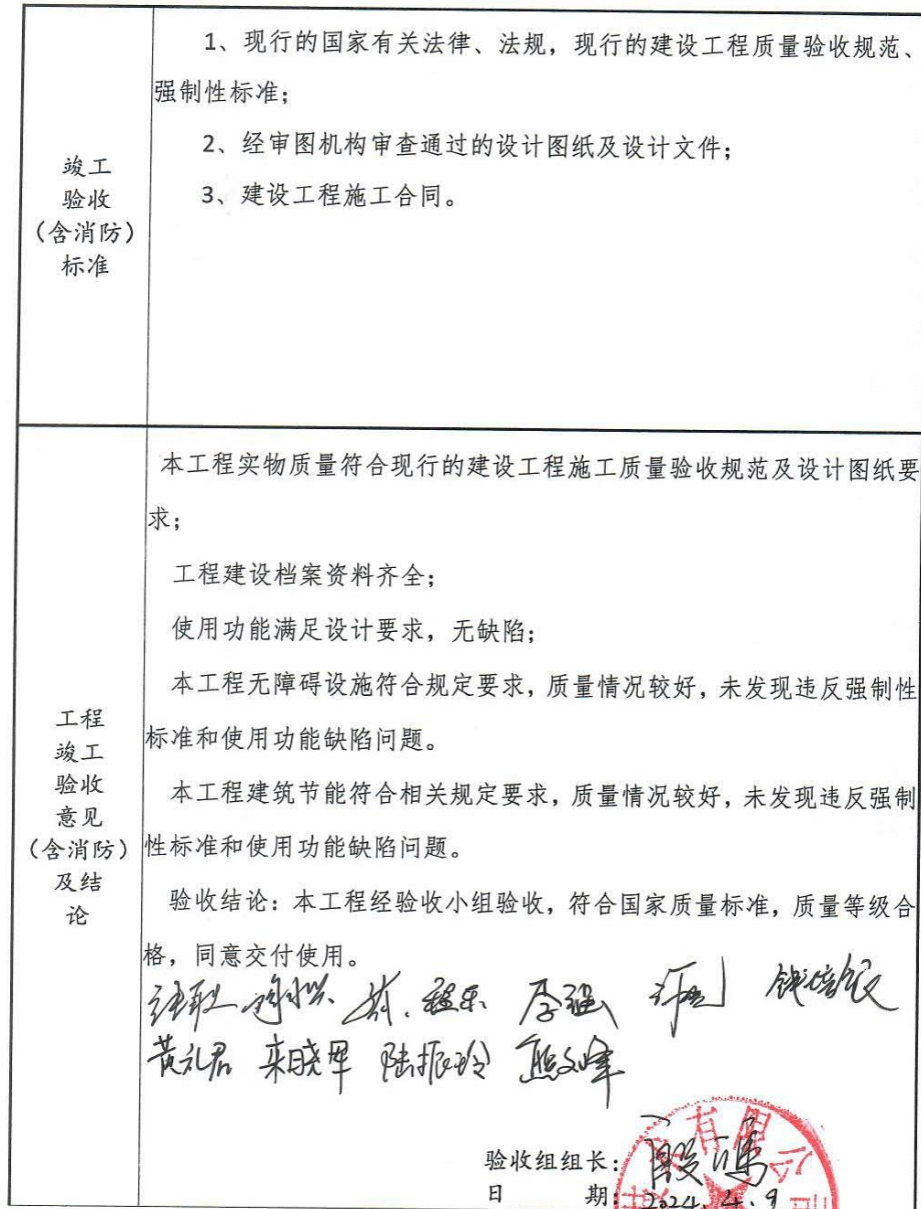 竣工
验收
（含消防）
标准
1、现行的国家有关法律、法规，现行的建设工程质量验收规范、
强制性标准；
2、经审图机构审查通过的设计图纸及设计文件；
3、建设工程施工合同。
工程
竣工
验收
意见
（含消防）
及结
论
本工程实物质量符合现行的建设工程施工质量验收规范及设计图纸要
求；
工程建设档案资料齐全；
使用功能满足设计要求，无缺陷；
本工程无障碍设施符合规定要求，质量情况较好，未发现违反强制性
标准和使用功能缺陷问题。
本工程建筑节能符合相关规定要求，质量情况较好，未发现违反强制
性标准和使用功能缺陷问题。
验收结论：本工程经验收小组验收，符合国家质量标准，质量等级合
格，同意交付使用。
李强
黄礼君 来晓军 陆振玲 熊文峰
有限公司
验收组组长：
日 期：2024.4.9